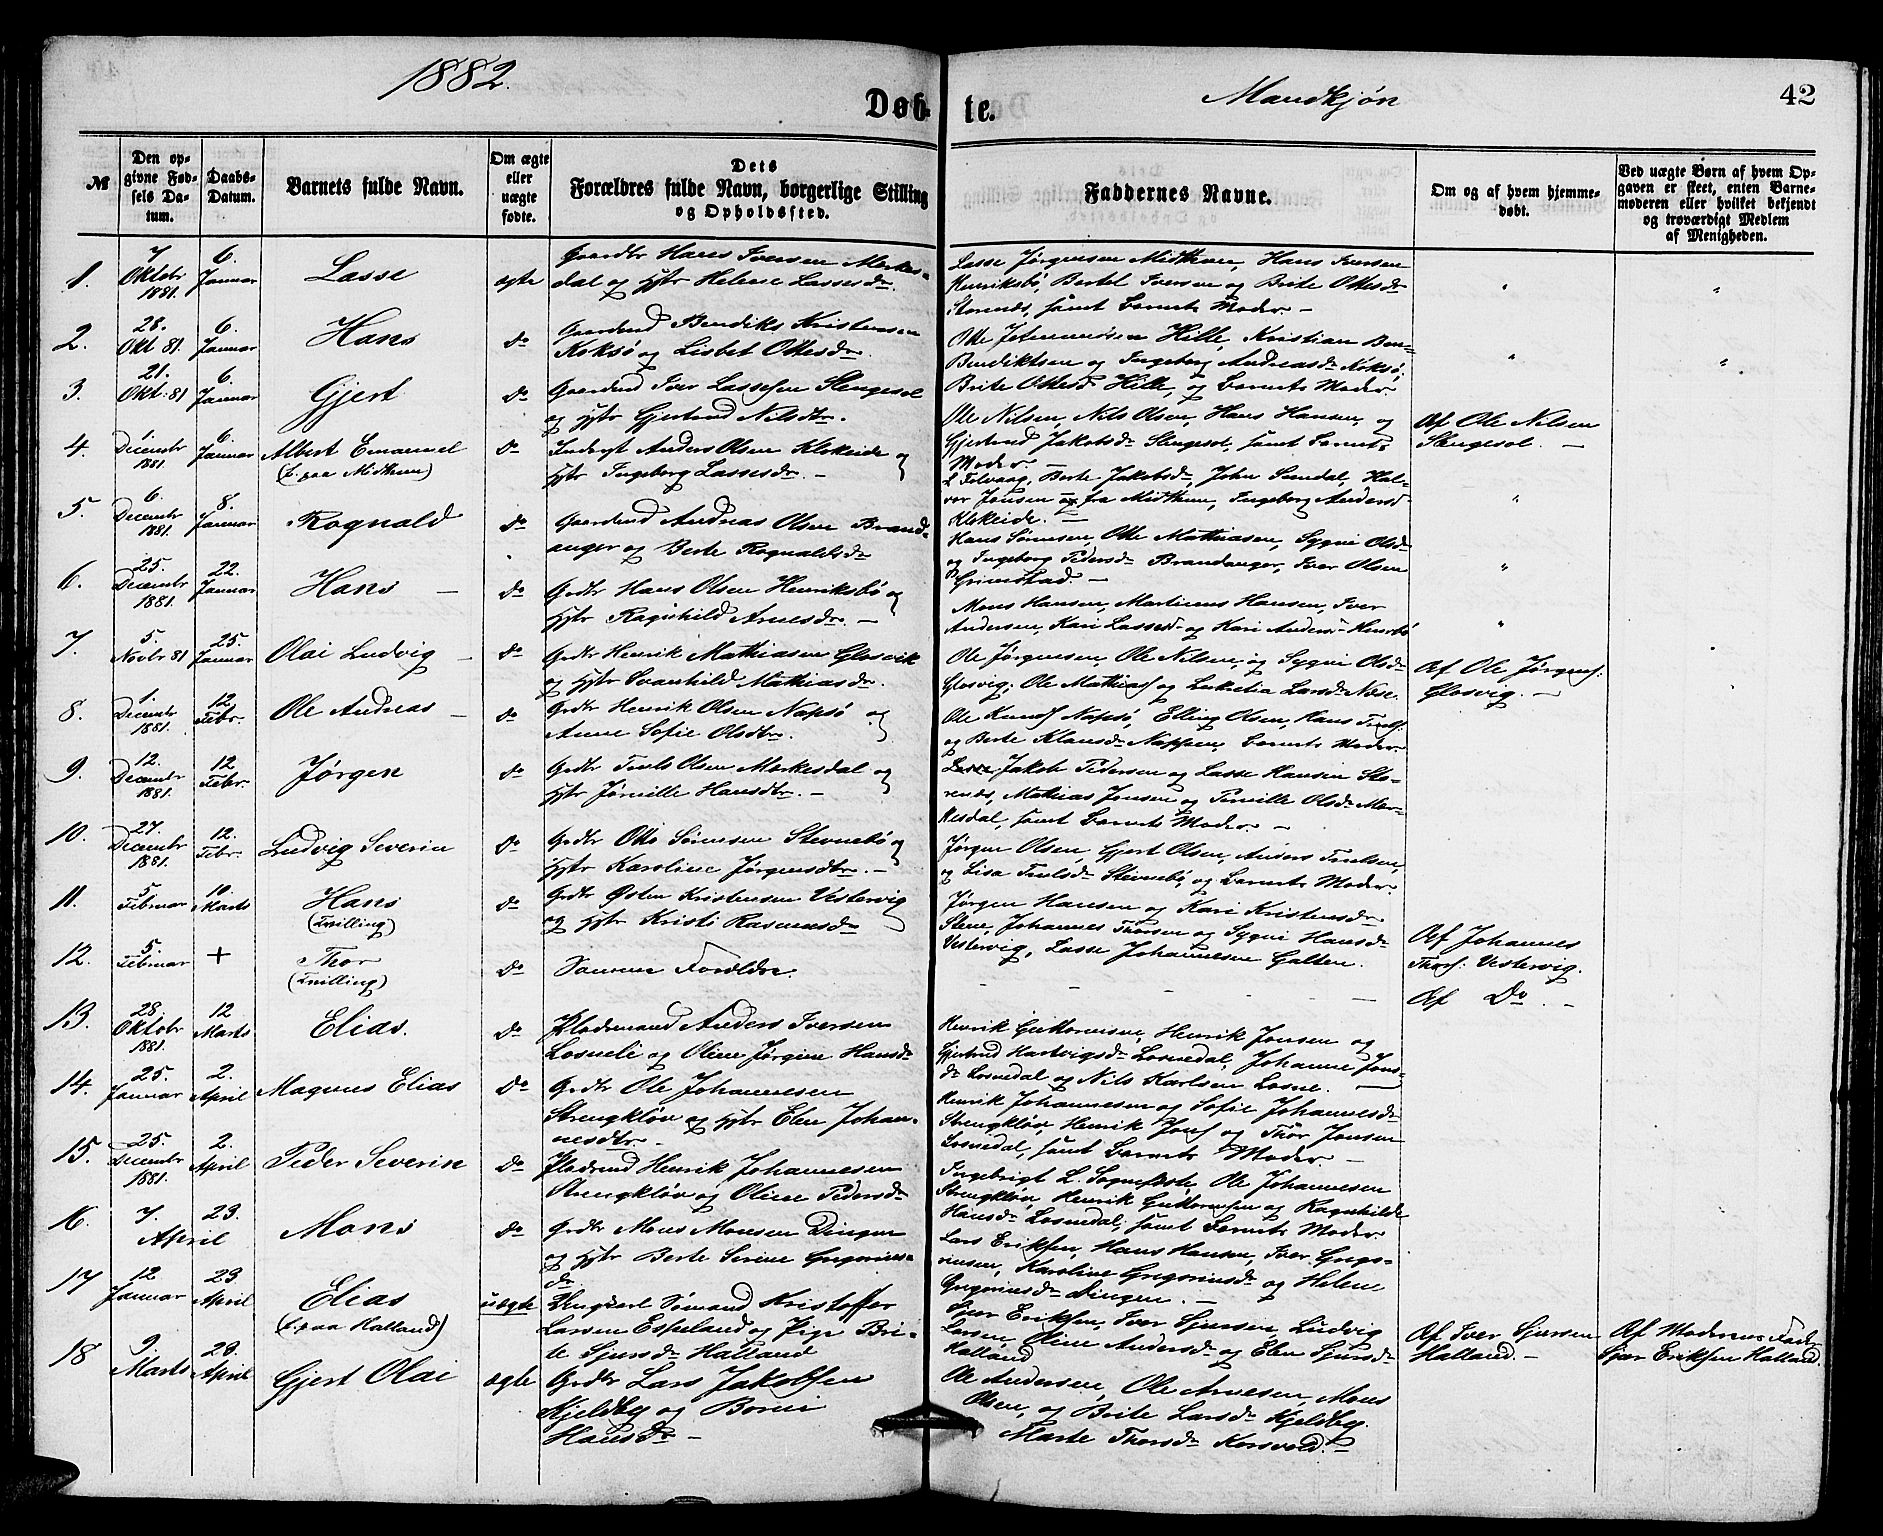 1882.
Døb-
te.
Mandkjøn
42
№
Den op-
givne Fød-
sels Da-
tum.
Daabs-
Datum.
Barnets fulde Navn.
Om ægte
eller
uægte
fødte.
Dets
Forældres fulde Navn, borgerlige Stilling
og Opholdssted.
Faddernes Navne.
Om og af hvem hjemme-
døbt.
Ved uægte Børn af hvem Op-
gaven er skeet, enten Barne-
moderen eller hvilket bekjendt
og troværdigt Medlem
af Menigheden.
1.
7
Oktobr
1881.
6.
Januar
Lasse
ægte
Gaardbr Hans Iversen Merkes-
dal og Hstr Helene Lassesdr.
Lasse Jørgensen Midthun, Hans Iversen
Henriksbø, Bertel Iversen og Brite Ottesdr
Storenes, samt Barnets Moder —
2.
28.
Okt 81.
6.
Januar
Hans
do
Gaardmd Bendiks Kristensen
Koksø og Lisbet Ottesdr.
Otte Hille, Kristian Ben-
Bendiktsen og Ingeborg Andreasdr Koksø,
Brite Ottesd Hille, og Barnets Moder.
3.
21.
Okt. 81
6.
Januar
Gjert
do
Gaardmd Iver Lassesen Slengesol
og Hstr Gjertrud Nilsdtr.
Ole Nilsen, Nils Olsen, Hans Hansen, og
Gjertrud Jakobsdr Slengesol, samt Barnets
Moder. —
Af Ole Nilsen
Slengesol. —
4.
1.
Decembr
1881.
6.
Januar
Albert Emanuel
(f. paa Midthun)
do
Inderst Anders Olsen Klekeide og
Hstr Ingeborg Lassesdr. —
Berte Jakobsdr, John Sundal, Hal-
vor Jonsen og fra Midthun, Ingeborg Andersd
Klekeide. —
5.
6.
Decembr
1881.
8.
Januar
Rognald
do
Gaardmd Andreas Olsen Brand-
anger og Berte Rognaldsdr
Hans Sørensen, Otte Mathiasen, Sygni Olsd-
og Ingeborg Pedersdr Brandanger, Iver Olsen
Grimstad. —
6.
25.
Decembr
1881.
22.
Januar
Hans —
do
Grdbr Hans Olsen Henriksbø og
Hstr Ragnhild Arnesdr. —
Mons Hansen, Martinus Hansen, Iver
Andersen, Kari Lassesdr og Kari Andersdr Henrbø
7.
5.
Novbr 81
25.
Januar
Olai Ludvig —
do
Grdbr Henrik Mathiasen Glosvik
og Hstr Svanhild Mathiasdr.
Ole Jørgensen, Ole Nilsen, og Sygni Olsdr
Glosvig; Ole Mathias og Lukelia Larsdr Nese.
Af Ole Jørgens.
Glosvig. —
8.
1.
Decembr
1881.
12
Febr.
Ole Andreas —
do
Grdbr Henrik Olsen Napsø og
Anne Sofie Olsdtr.
Ole Knuds Napsø, Elling Olsen, Hans
og Berte Klausdr Nappen, Barnets Moder
9.
12.
Decembr
1881.
12
Febr.
Jørgen
do
Grdbr Truls Olsen Merkesdal og
Hstr Jørnille Hansdtr. —
Jakob Pedersen og Lasse Hansen Sto-
renes, Mathias Jonsen og Pernille Olsdr Mer-
kesdal, samt Barnets Moder —
10.
27.
Decembr
1881.
12.
Febr.
Ludvig Severin
do
Grdbr Otto Sørensen Stevnebø og
Hstr Karoline Jørgensdtr. —
Jørgen Olsen, Gjert Olsen, Anders Trulsen,
og Lisa Trulsdr Stevnebø, og Barnets Moder.
11.
5.
Februar
10.
Marts
Hans
(Tvilling)
do
Grdbr Østen Kristensen Vestervig
og Hstr Kristi Rasmusdr
Jørgen Hansen og Kari Kristensdr
Stene, Johannes Thorsen og Sygni Hansdr
Vestervig, Lasse Johannesen Galten.
Af Johannes
Thors. Vestervig.
12.
5.
Februar
+
Thor
(Tvilling)
do
Samme Forældre.
— — — — —
Af Do. —
13.
28.
Oktobr
1881.
12
Marts
Elias.
do
Pladsmand Anders Iversen
Losneli og Oline Jørgine Hansdr
Henrik Guttormsen, Henrik Jonsen og
Gjertrud Hartvigsdr Losnedal, Johanne Jons-
dr Losnedal og Nils Karlsen Losne. —
14.
25.
Januar
2.
April
Magnus Elias
do
Grdbr Ole Johannesen
Strengkløv og Hstr Elen Johan-
nesdtr. —
Henrik Johannesen og Sofie Johannesdr
Strengkløv, Henrik Jons og Thor Jonsen
Losnedal, samt Barnets Moder. —
15.
25.
Decembr
1881.
2.
April
Peder Severin
do
Pladsmd Henrik Johannesen
Strengkløv og Oline Pedersdr
Ingebrigt L. Sognefeste, Ole Johannesen
Strengkløv, Henrik Guttormsen og Ragnhilde
Hansdr Losnedal, samt Barnets Moder
16.
7.
April
23.
Mons
do
Grdbr Mons Monsen Dingen
og Hstr Berte Serine Gregorius-
dr
Lars Eriksen, Hans Hansen, Iver Grego-
riusen, Karoline Gregoriusdr og Helene
Gregoriusdr Dingen. —
17
12
Januar
23
April
Elias
(f. paa Halland)
uægte
Ungkarl Sømand Kristoffer
Larsen Espeland og Pige Bri-
te Sjursdr Halland
Sjur Eriksen, Iver Sjursen, Ludvig
Larsen, Oline Andersdr og Elen Sjursdr
Halland
Af Iver Sjursen
Halland. —
Af Moderens Fader
Sjur Eriksen Halland.
18
9.
Marts
23.
April
Gjert Olai
ægte
Grdbr Lars Jakobsen
Kjeldby og Borni
Hansdr —
Ole Andersen, Ole Arnesen, Mons
Olsen, og Brite Larsdr Kjeldby.
Marte Thorsdr Korsvold. —